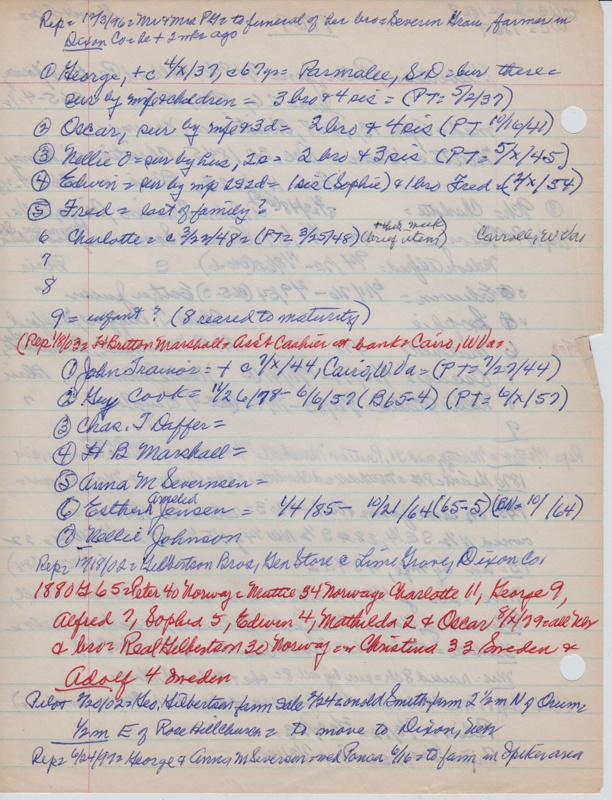 Rep = 12/3/96 = Mr & Mrs PG = to funeral of her bro = Severin Grow, farmer in
Dixon Co = de + 2 wks ago
① George, + c 4/x/37, c 67 yr = Parmalee, S D = bur there =
sur by wife & children = 3 bro & 4 sis = (PT = 5/2/37)
② Oscar, sur by wife & 3d = 2 bro & 4 sis (PT 10/16/41)
③ Nellie O = sur by hus, 2s = 2 bro & 3 sis (PT = 5/x/45)
④ Edwin = sur by wife 2s 2d = 1 sis (Sophie) & 1 bro Fred (2/x/54)
⑤ Fred = last of family?
6 Charlotte = c 3/22/48 = (PT = 3/25/48) (brief item) Carroll, W
7
8
9 = infant? (8 reared to maturity)
(Rep 1/8/03 = H Britton Marshall = Ass't Cashier at bank = Cairo, WVa =
① John Trainor = + c 7/x/44, Cairo, WVa = (PT = 7/27/44)
② Guy Cook = 11/26/78 - 6/6/57 (B65-4) (PT = 6/x/57)
③ Chas. T Daffer =
④ H B Marshall =
⑤ Anna M Severnsen =
⑥ Esther Angelid Jensen = 1/4/85 - 10/21/64 (65-5) (BN = 10/ /64)
⑦ Nellie Johnson
Rep = 12/18/02 = Gilbertson Bros, Gen Store @ Lime Grove, Dixon Co,
1880 G 65 = Peter 40 Norway = Mattie 34 Norway = Charlotte 11, George 9,
Alfred 7, Sophia 5, Edwin 4, Mathilda 2 & Oscar 8/x/79 = all Neb
& bro = Real Gilbertson 30 Norway = Christina 33 Sweden &
Adolf 4 Sweden
Pilot 2/20/02 = Geo, Gilbertson farm sale 2/24 = on old Smith farm 2 1/2 m N of Orum
1/2 m E of Rose Hill Church = to move to Dixon, Neb
Rep = 6/24/97 = George & Anna M Severson = wed Ponca 6/16 = to farm in area